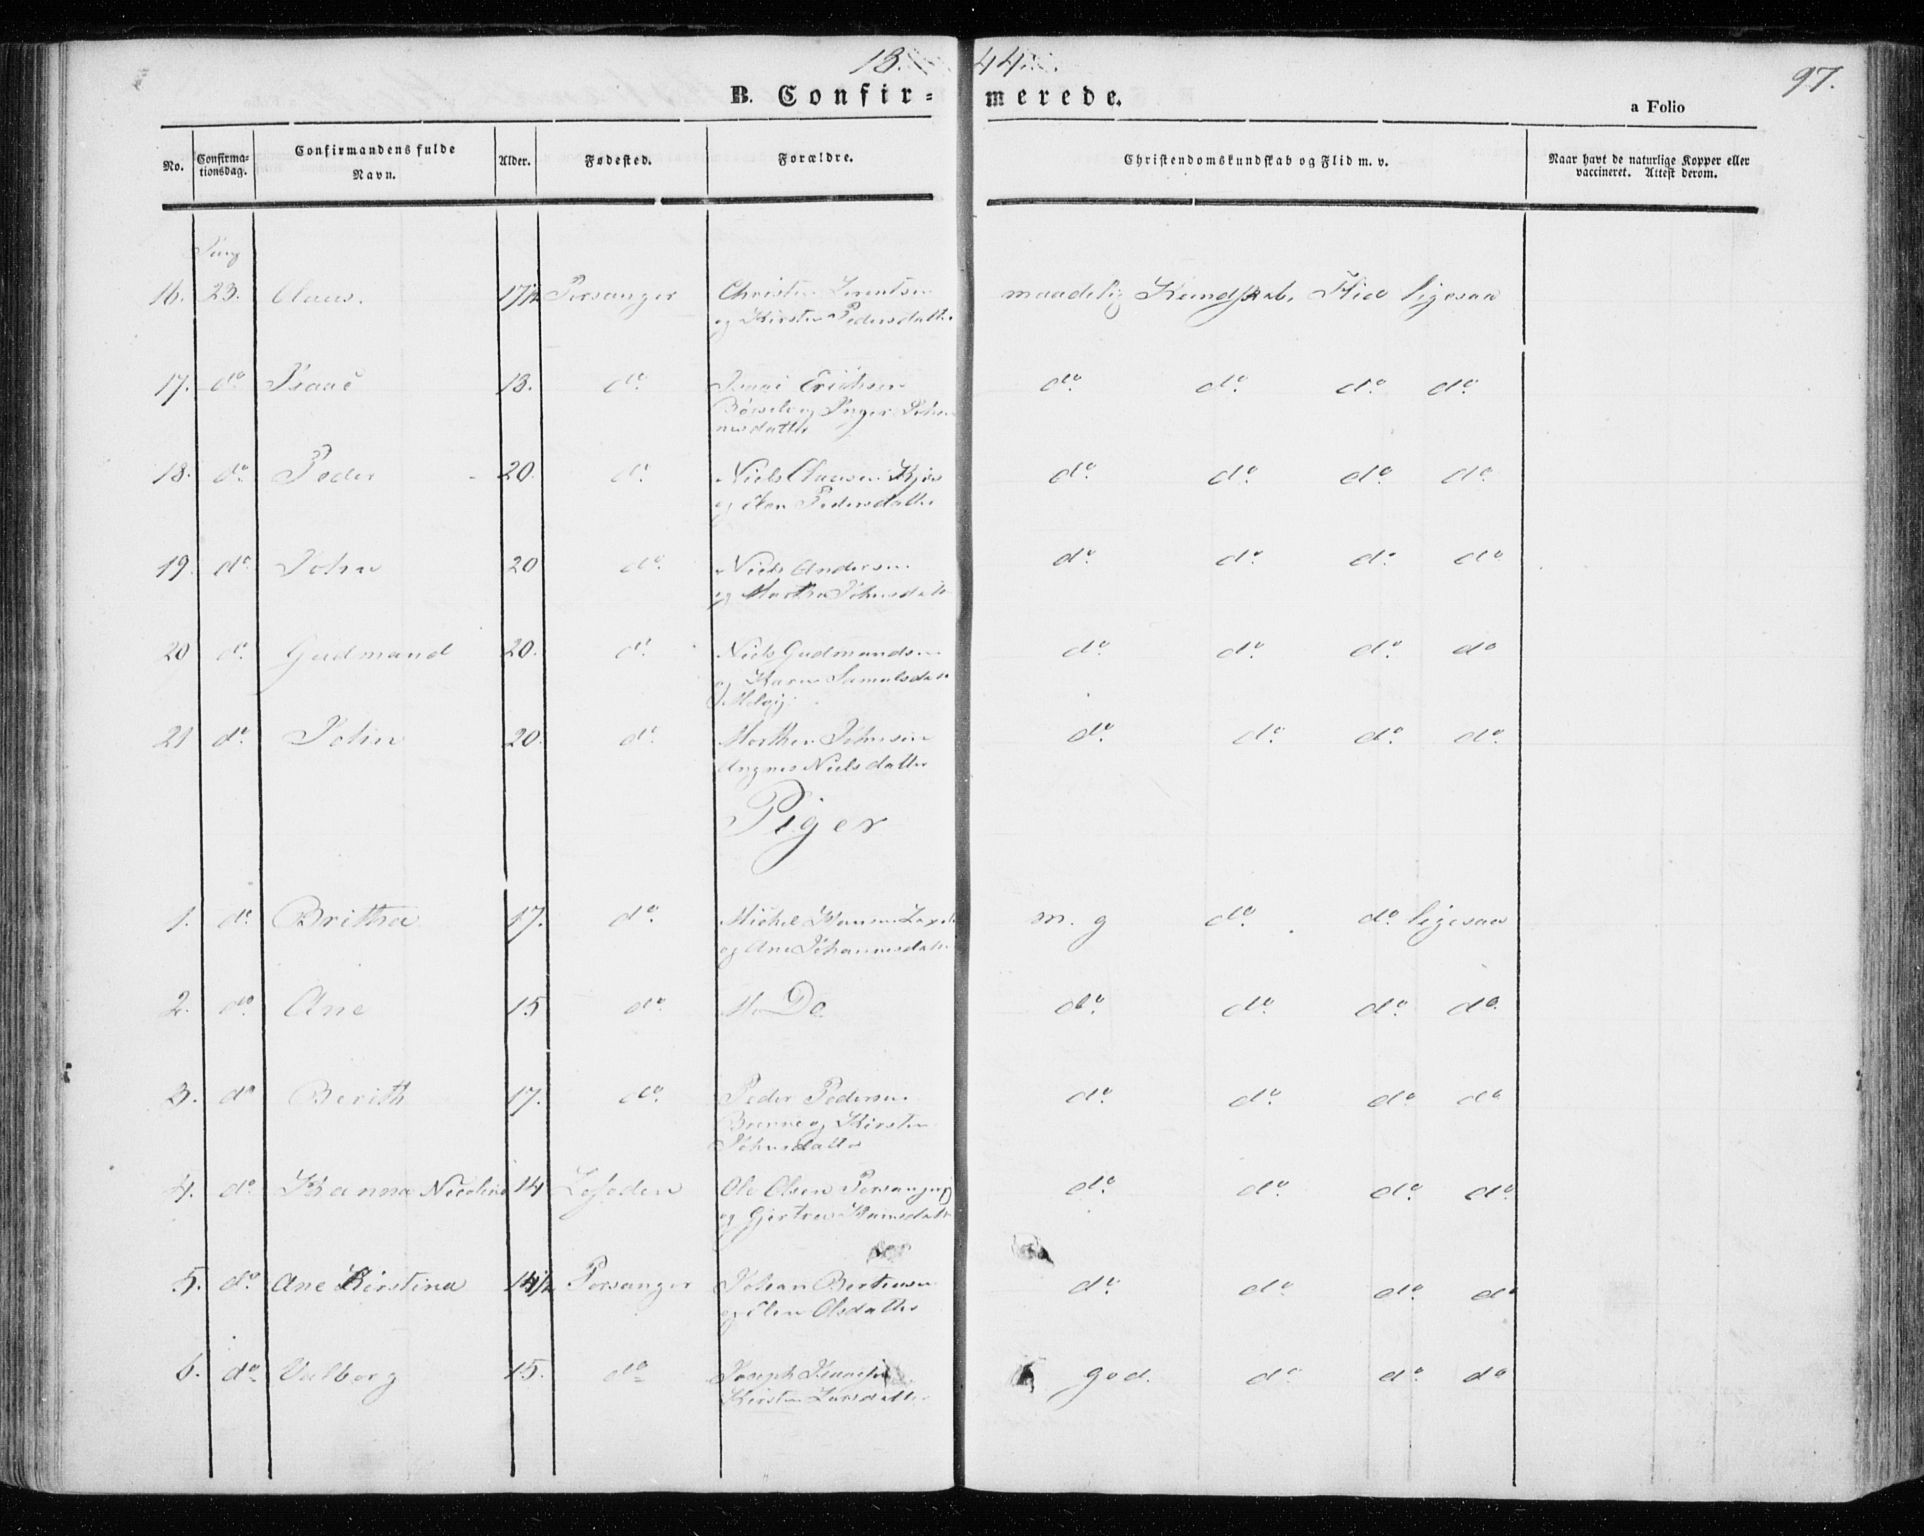 18 44.
97.
B. Confir= merede.
a Folio
No. Confirma-tionsdag. Confirmandens fulde Navn. Alder. Fødested. Forældre. Christendomskundskab og Flid m. v. Naar havt de naturlige Kopper eller vaccineret. Attest derom.
16. 23. Claus. 17½ Porsanger Christen Lorentsen maadelig Kundskab, Flid ligesaa
og Kirsten Pedersdatter
17. do Isaac 18. do Isaac Erichsen do. do. do. do.
Børselv og Inger Johan
nesdatter
18. do Peder 20. do Niels Clausen do. do. do. do.
og Elen Pedersdatter
19. do John 20 do. Niels Andersen do. do. do. do
og Marthe Johnsdatter
20 do. Gudmand 20. do. Niels Gudmundsen do. do. do. do
og Karen Samulsdatter
21 do. John 20. do. Morthen Johnsen do. do. do. do.
Angnes Nielsdatter
Piger
1. do. Brittha 17. do. Michel Hansen m. g do. do. ligesaa
og Ane Johannesdatter
2. do. Ane 15 do. Do do. do. do. do.
3. do Berith 17. do. Peder Pedersen do. do. do. do
Brenne og Kirsten
Johnsdatter
4. do. Hanna Nicolina 14 Lofoden Ole Olsen Porsanger do. do. do. do.
og Gjertru Hansdatter
5. do. Ane Kirstina 14½ Porsanger Johan Bertensen do. do. do. do
og Elen Olsdatter
6. do. Valborg 15. do Joseph god. do. do. do
Kirsten Larsdatter